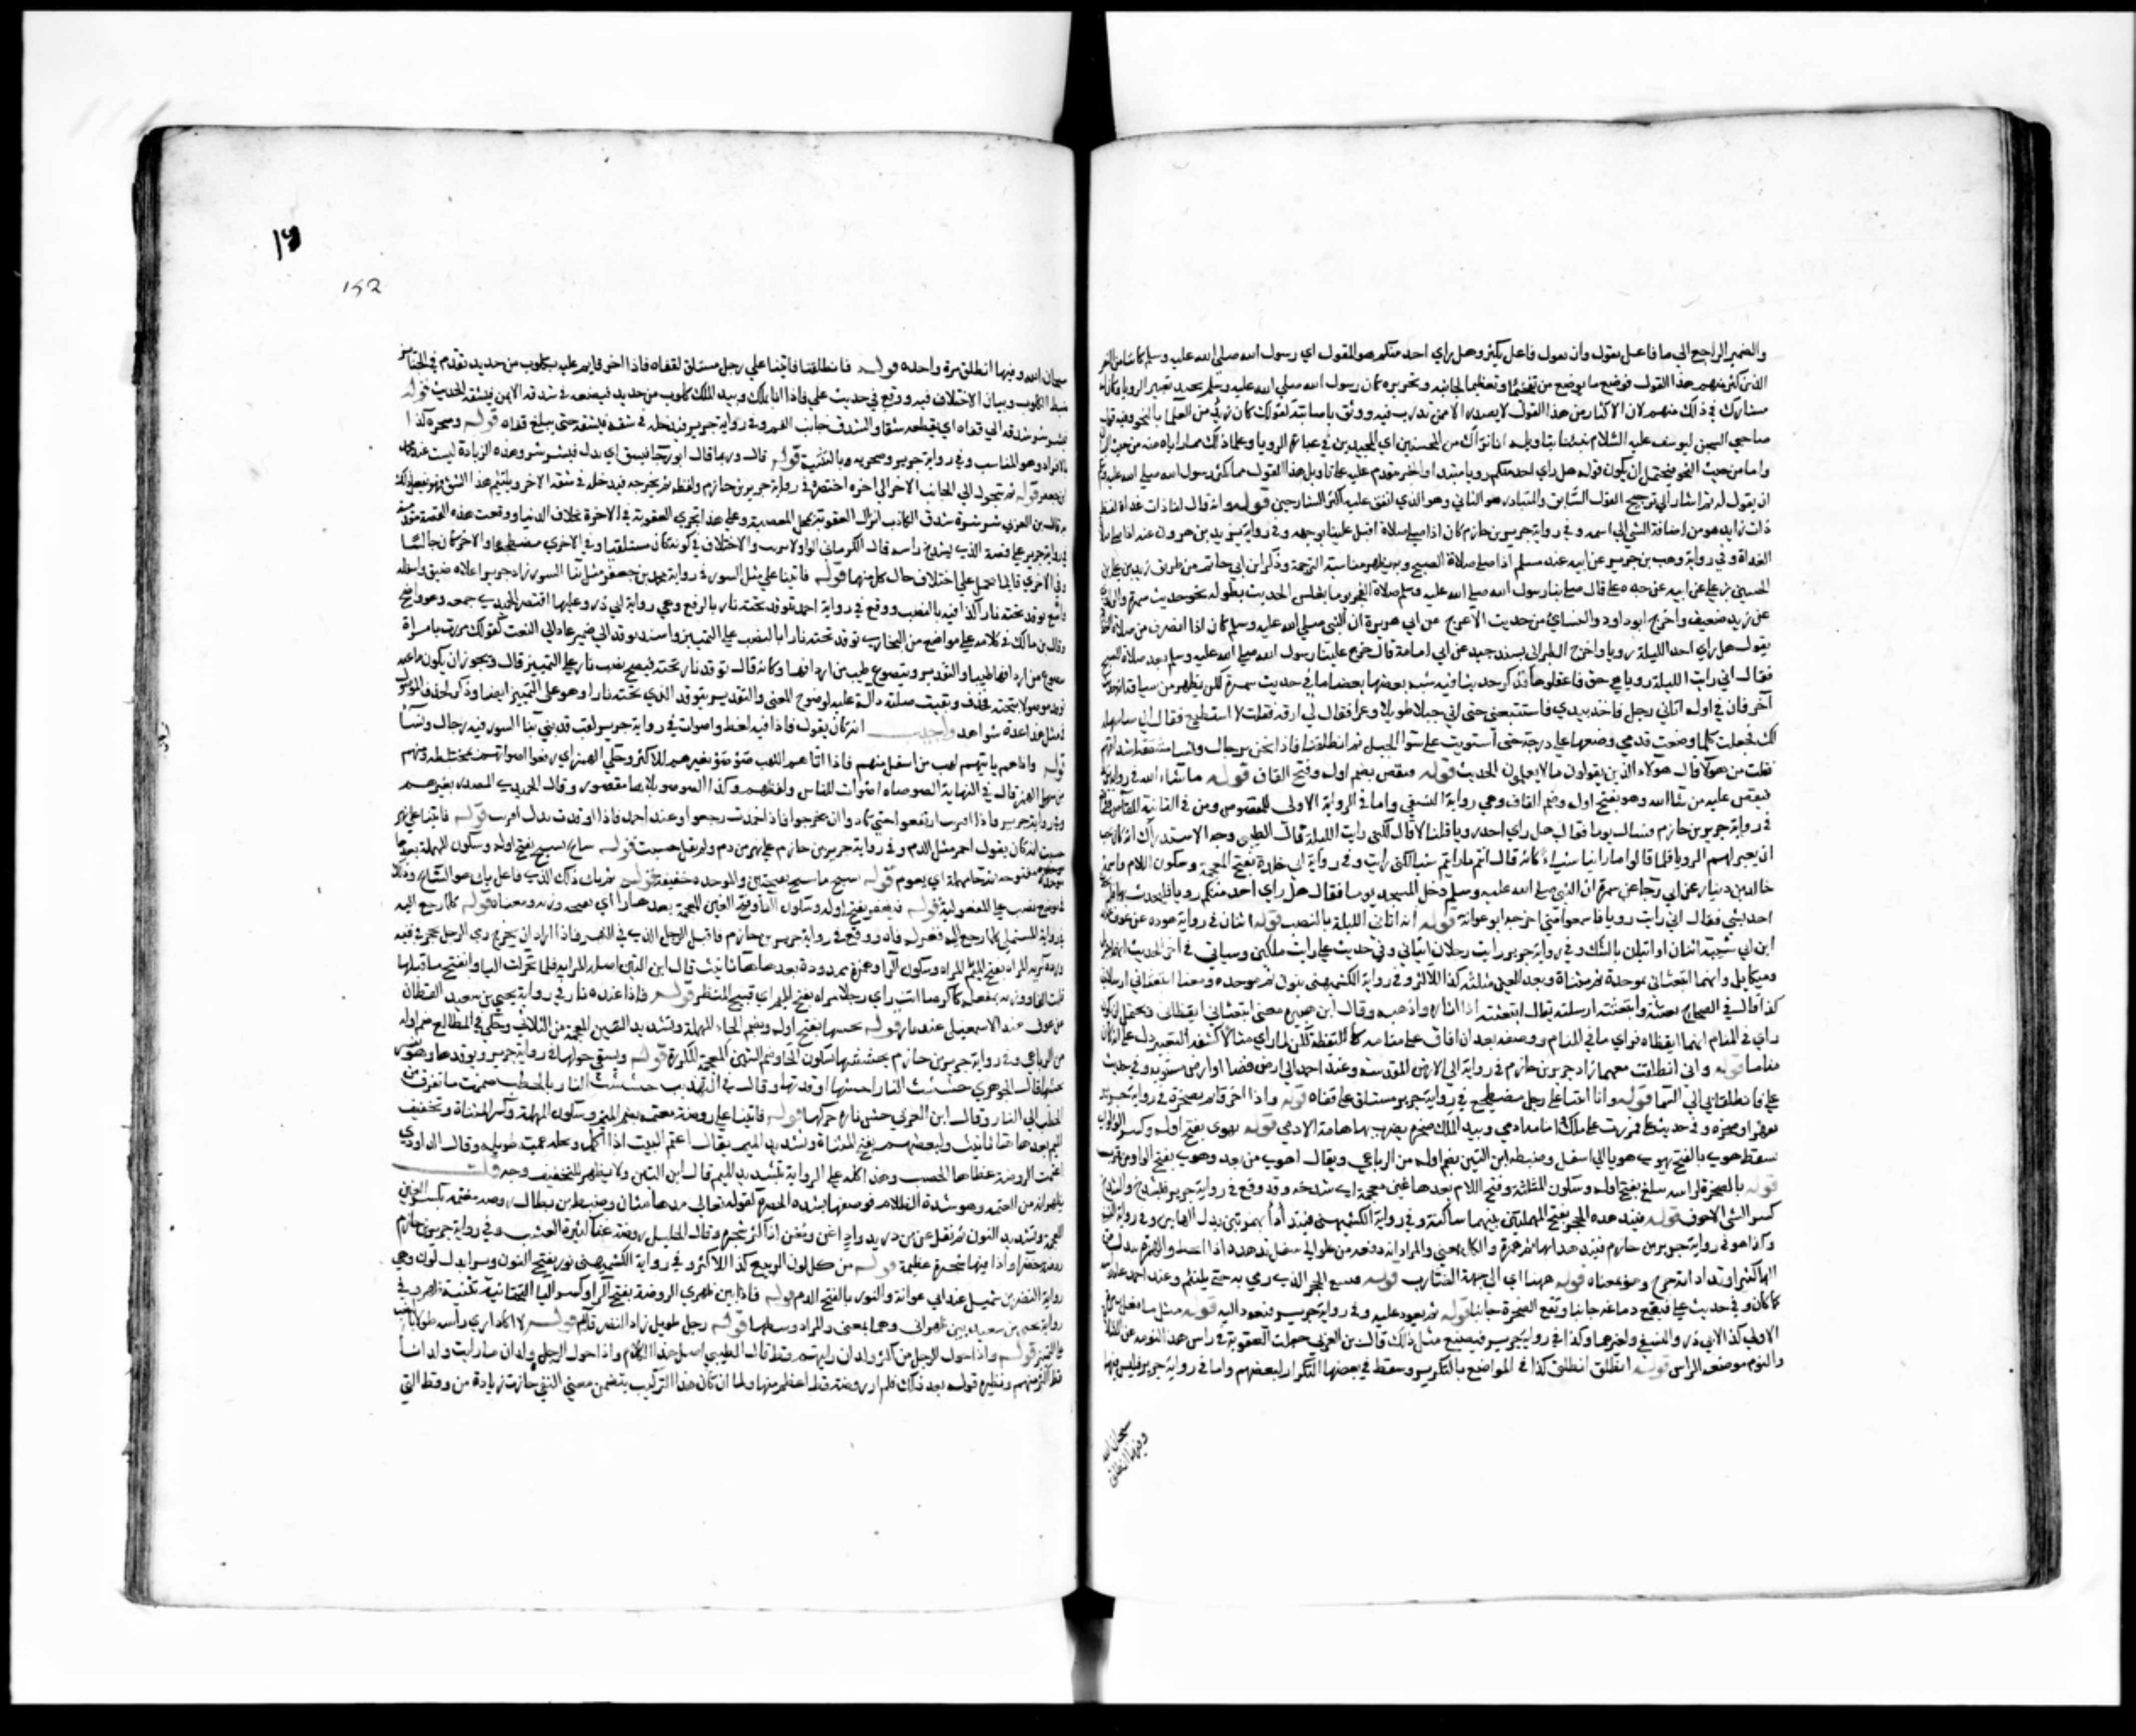 والضمير الراجع الى ما فاعل يقول وان يقول فاعل يكثر وهل راي احد منكم هو المقول اي رسول الله صلى الله عليه وسلم كاينا من النفر
الذين كثر منهم هذا القول فوضع ما موضع من تفخيما وتعظيما لجانبه وتحريره كان رسول الله صلى الله عليه وسلم يجيد تعبير الرويا وكان له
مشارك في ذلك منهم لان الاكثار من هذا القول لا يصدر الا ممن تدرب فيه ووثق باصابته كقولك كان زيد من العلما بالنحو ومنه قول
صاحبي السجن ليوسف عليه السلام نبئنا بتاويله انا نراك من المحسنين اي المجيدين في عبارة الرويا وعلما ذلك مما راياه منه
واما من حيث النحو فيحتمل ان يكون قوله هل راي احد منكم رويا مبتدا والخبر مقدم عليه على تاويل هذا القول مما يكثر رسول الله صلى الله عليه وسلم
ان يقول له ثم اشار الى ترجيح القول السابق والمتبادر هو الثاني وهو الذي اتفق عليه اكثر الشارحين قوله وانه قال لنا ذات غداة لفظ
ذات زايد وهو من اضافة الشي الى اسمه وفي رواية جرير بن حازم كان اذا صلى صلاة اقبل علينا بوجهه وفي رواية يزيد بن هرون عنه اذا صلى صلاة
الغداة وفي رواية وهب بن جرير عن ابيه عند مسلم اذا صلى صلاة الصبح وبه يظهر مناسبة الترجمة وذكر ابن ابي حاتم من طريق زيد بن علي بن
الحسين بن علي عن ابيه عن جده علي قال صلى بنا رسول الله صلى الله عليه وسلم صلاة الفجر يوما فجلس الحديث بطوله نحو حديث سمرة والراوي
عن زيد ضعيف واخرج ابو داود والنساي من حديث الاعرج عن ابي هريرة ان النبي صلى الله عليه وسلم كان اذا انصرف من صلاة الغداة
يقول هل راي احد الليلة رويا واخرج الطبراني بسند جيد عن ابي امامة قال خرج علينا رسول الله صلى الله عليه وسلم بعد صلاة الصبح
فقال اني رايت الليلة رويا هي حق فاعقلوها فذكر حديثا فيه شبه بعضها بعض ما في حديث سمرة لكن يظهر من سياقه انه حديث
آخر فان في اوله اتاني رجل فاخذ بيدي فاستتبعني حتى اتى جبلا طويلا وعرا فقال لي ارقه فقلت لا استطيع فقال اني ساسهله
لك فجعلت كلما وضعت قدمي وضعتها على درجة حتى استويت على سوا الجبل ثم انطلقنا فاذا نحن برجال ونسا مشققة اشداقهم
فقلت من هولا قال هولاء الذين يقولون ما لا يعلمون الحديث قوله فيقص بضم اوله وفتح القاف قوله ما شاء الله في رواية
فيقص عليه من شا الله وهو بفتح اوله وضم القاف وهي رواية النسفي واما في الرواية الاولى للمقصوص ومن في الثانية للقاص
في رواية جرير بن حازم فسال يوما فقال هل راي احد رويا قلنا لا قال لكني رايت الليلة قال الطيبي وجه الاستدراك انه كان يحب
ان يعبر لهم الرويا فلما قالوا ما راينا شيا كانه قال انتم ما رايتم شيا لكني رايت وفي رواية ابي خلدة بفتح المعجمة وسكون اللام واسمه
خالد بن دينار عن ابي رجا عن سمرة ان النبي صلى الله عليه وسلم دخل المسجد يوما فقال هل راي احد منكم رويا فليحدث بها فلم
احد بشي فقال اني رايت رويا فاسمعوا مني اخرجه ابو عوانة قوله انه اتاني الليلة بالنصب قوله اثنان في رواية هوذة عن عوف
ابن ابي شيبة اثنان او اتيان بالشك وفي رواية جرير رايت رجلان اتياني وفي حديث علي رايت ملكين وسياتي في اخر الحديث
وميكايل وانهما ابتعثاني بموحدة ثم مثناة وبعد العين مثلثة كذا للاكثر وفي رواية الكشميهني بنون ثم موحدة ومعنا ابتعثاني ارسلاني
كذا قال في الصحاح بعثته وابتعثته ارسلته يقال ابتعثته اذا اثاره واذهبه وقال ابن هبيرة معنى ابتعثاني ايقظاني ويحتمل ان يكون
راي في المنام انهما ايقظاه فراي ما في المنام ووصفه بعد ان افاق على ان منامه كاليقظة لكن لما راي مثالا كشفه التعبير دل على انه كان
مناما قوله واني انطلقت معهما زاد جرير بن حازم في روايته الى الارض المقدسة وعند احمد الى ارض فضا او ارض مستوية وفي حديث
علي فانطلقا بي الى السما قوله وانا اتينا على رجل مضطجع في رواية جرير مستلق على قفاه قوله واذا اخر قايم بصخرة في رواية جرير
بفهر او صخرة وفي حديث علي فمررت على ملك وامامه ادمي وبيد الملك صخرة يضرب بها هامة الادمي قوله يهوي بفتح اوله وكسر الواو اي
يسقط هوى بالفتح يهوي هويا الى اسفل وضبطه ابن التين بضم اوله من الرباعي ويقال اهوى من بعد وهوى بفتح الواو من قرب
قوله بالصخرة لراسه فيثلغ بفتح اوله وسكون المثلثة وفتح اللام بعدها غين معجمة اي يشدخه وقد وقع في رواية جرير فيشدخ والشدخ
كسر الشي الاجوف قوله فيتدهده الحجر بفتح المهملتين بينهما ساكنة وفي رواية الكشميهني فيتدادا بهمزتين بدل الهاءين وفي رواية النسفي
وكذا هو في رواية جرير بن حازم فيتدهدا بهاء ثم همزة والكل بمعنى والمراد انه دفعه من علو الى سفل تدهده اذا انحط والهمزة بدل من
الها كثيرا وتدادا تدحرج وهو بمعناه قوله ههنا اي الى جهة الضارب قوله فيتبع الحجر الذي رمي به حتى يلتئم وعند احمد عاد راسه
كما كان وفي حديث علي فيقع دماغه جانبا وتقع الصخرة جانبا قوله ثم يعود عليه وفي رواية جرير فيعود اليه قوله مثل ما فعل به المرة
الاولى كذا لابي ذر والنسفي ولغيرهما وكذا في رواية جرير فيصنع مثل ذلك قال ابن العربي جعلت العقوبة في راس هذا النومه عن الصلاة
والنوم موضعه الراس قوله انطلق انطلق كذا في المواضع بالتكرير وسقط في بعضها التكرار لبعضهم واما في رواية جرير فليس فيها
سبحان الله
وفيها انطلق
152
سبحان الله وفيها انطلق مرة واحدة قوله فانطلقنا فاتينا على رجل مستلق لقفاه فاذا اخر قايم عليه بكلوب من حديد تقدم في الجنايز
ضبط الكلوب وبيان الاختلاف فيه ووقع في حديث علي فاذا انا بملك وبيد الملك كلوب من حديد فيضعه في شدقه الايمن فيشقه الحديث قوله
فيشرشر شدقه الى قفاه اي يقطعه شقا والشدق جانب الفم وفي رواية جرير فيدخله في شقه فيشقه حتى يبلغ قفاه قوله ومنخره كذا
بالافراد وهو المناسب وفي رواية جرير ومنخريه وبالتثنية قوله قال وربما قال ابو رجا فيشق اي بدل فيشرشر وهذه الزيادة ليست عند محمد
ابن جعفر قوله ثم يتحول الى الجانب الاخر الى اخره اختصره في رواية جرير بن حازم ولفظه ثم يخرجه فيدخله في شقه الاخر ويلتئم هذا الشق
قال ابن العربي شرشرة شدق الكاذب انزال العقوبة بمحل المعصية وعلى هذا تجري العقوبة في الاخرة بخلاف الدنيا ووقعت هذه القصة مقدمة
في رواية جرير على قصة الذي يشدخ راسه قال الكرماني الواو لا ترتب والاختلاف في كونه كان مستلقيا وفي الاخرى مضطجعا والاخر كان جالسا
وفي الاخرى قايما يحمل على اختلاف حال كل منهما قوله فاتينا على مثل التنور في رواية محمد بن جعفر مثل بنا التنور زاد جرير اعلاه ضيق واسفله
واسع يوقد تحته نار كذا فيه بالنصب ووقع في رواية احمد تتوقد تحته نار بالرفع وهي رواية ابي ذر وعليها اقتصر الحميدي في جمعه وهو واضح
وقال ابن مالك في كلامه على مواضع من البخاري توقد تحته نارا بالنصب على التمييز واسند يوقد الى ضمير عايد الى النقب كقولك مررت بامراة
تضوع من اردافها طيبا والتقدير يتضوع طيب من اردافها وكانه قال توقد نار تحته فيصح نصب نار على التمييز قال ويجوز ان يكون فاعل
توقد موصولا بتحته فحذف وبقيت صلته دالة عليه لوضوح المعنى والتقدير يتوقد الذي تحته نارا وهو على التمييز ايضا وذكر لحذف الموصول
في مثل هذا عدة شواهد واحسب انه كان يقول فاذا فيه لغط واصوات في رواية جرير ثقب قد بني بنا التنور فيه رجال ونسا
قوله واذا هم ياتيهم لهب من اسفل منهم فاذا اتاهم اللهب ضوضوا بغير همز للاكثر وحكي الهمز اي رفعوا اصواتهم مختلطة ومنهم
من سهل الهمز قال في النهاية الضوضاه اصوات الناس ولغطهم وكذا الضوضى بلا ها مقصور وقال الحميدي المصدر بغير همز
وفي رواية جرير فاذا اقترب ارتفعوا حتى كادوا ان يخرجوا فاذا خمدت رجعوا وعند احمد فاذا اوقدت بدل اقتربت قوله فاتينا على نهر
حسبت انه كان يقول احمر مثل الدم وفي رواية جرير بن حازم على نهر من دم ولم يقل حسبت قوله سابح يسبح بفتح اوله وسكون المهملة بعدها
موحدة مفتوحة ثم حا مهملة اي يعوم قوله سبح ما سبح بفتحتين والموحدة خفيفة قوله ثم ياتي ذلك الذي فاعل ياتي هو السابح وذلك
في موضع نصب على المفعولية قوله فيفغر بفتح اوله وسكون الفا وفتح الغين المعجمة بعدها را اي يفتحه وزنه ومعناه قوله كلما رجع اليه
في رواية المستملي كما رجع اليه ففغر له فاه ووقع في رواية جرير بن حازم فاقبل الرجل الذي في النهر فاذا اراد ان يخرج رمى الرجل بحجر في فيه
ورده كريه المراة بفتح الميم وسكون الرا وهمزة ممدودة بعدها ها تانيث قال ابن التين اصله المراية فلما تحركت اليا وانفتح ما قبلها
قلبت الفا ووزنه مفعلة كاكره ما انت راي رجلا مراة بفتح الميم اي قبيح المنظر قوله فاذا عنده نار في رواية يحيى بن سعيد القطان
عن عوف عند الاسمعيلي عند نار قوله يحشها بفتح اوله وبضم الحاء المهملة وتشديد الشين المعجمة من الثلاثي وحكي في المطالع ضم اوله
من الرباعي وفي رواية جرير بن حازم يحششها بسكون الحا وضم الشين المعجمة المكررة قوله ويسعى حولها في رواية جرير ويوقدها وهو تفسير
يحشها قال الجوهري حششت النار احشها اوقدتها وقال في التهذيب حششت النار بالحطب ضممت ما تفرق من
الحطب الى النار وقال ابن العربي حش ناره حركها قوله فاتينا على روضة معتمة بضم الميم وسكون المهملة وكسر المثناة وتخفيف
الميم بعدها ها تانيث ولبعضهم بفتح المثناة وتشديد الميم يقال اعتم البيت اذا اكتمل ونخلة عميمة طويلة وقال الداودي
اعتمت الروضة غطاها الخصب وهذا كله على الرواية بتشديد الميم قال ابن التين ولا يظهر للتخفيف وجه قلت
يظهر انه من العتمة وهو شدة الظلام فوصفها بشدة الخضرة لقوله تعالى مدهامتان وضبطه ابن بطال روضة مغنة بكسر الغين
المعجمة وتشديد النون ثم نقل عن ابن دريد واد اغن ومغن اذا كثر شجره وقال الخليل روضة غنا كثيرة العشب وفي رواية جرير بن حازم
روضة خضرا واذا فيها شجرة عظيمة قوله من كل لون الربيع كذا للاكثر وفي رواية الكشميهني نور بفتح النون وبرا بدل لون وهي
رواية النضر بن شميل عند ابي عوانة والنور بالفتح الزهر قوله فاذا بين ظهري الروضة بفتح الرا وكسر اليا التحتانية تثنية ظهر وفي
رواية يحيى بن سعيد بين ظهراني وهما بمعنى والمراد وسطها قوله رجل طويل زاد النضر قايم قوله لا اكاد ارى راسه طولا بالنصب
على التمييز قوله واذا حول الرجل من اكثر ولدان رايتهم قط قال الطيبي اصل هذا الكلام واذا حول الرجل ولدان ما رايت ولدانا
قط اكثر منهم ونظيره قوله بعد ذلك فلم ار روضة قط اعظم منها ولما ان كان هذا التركيب يتضمن معنى النفي جازت زيادة من وقط التي